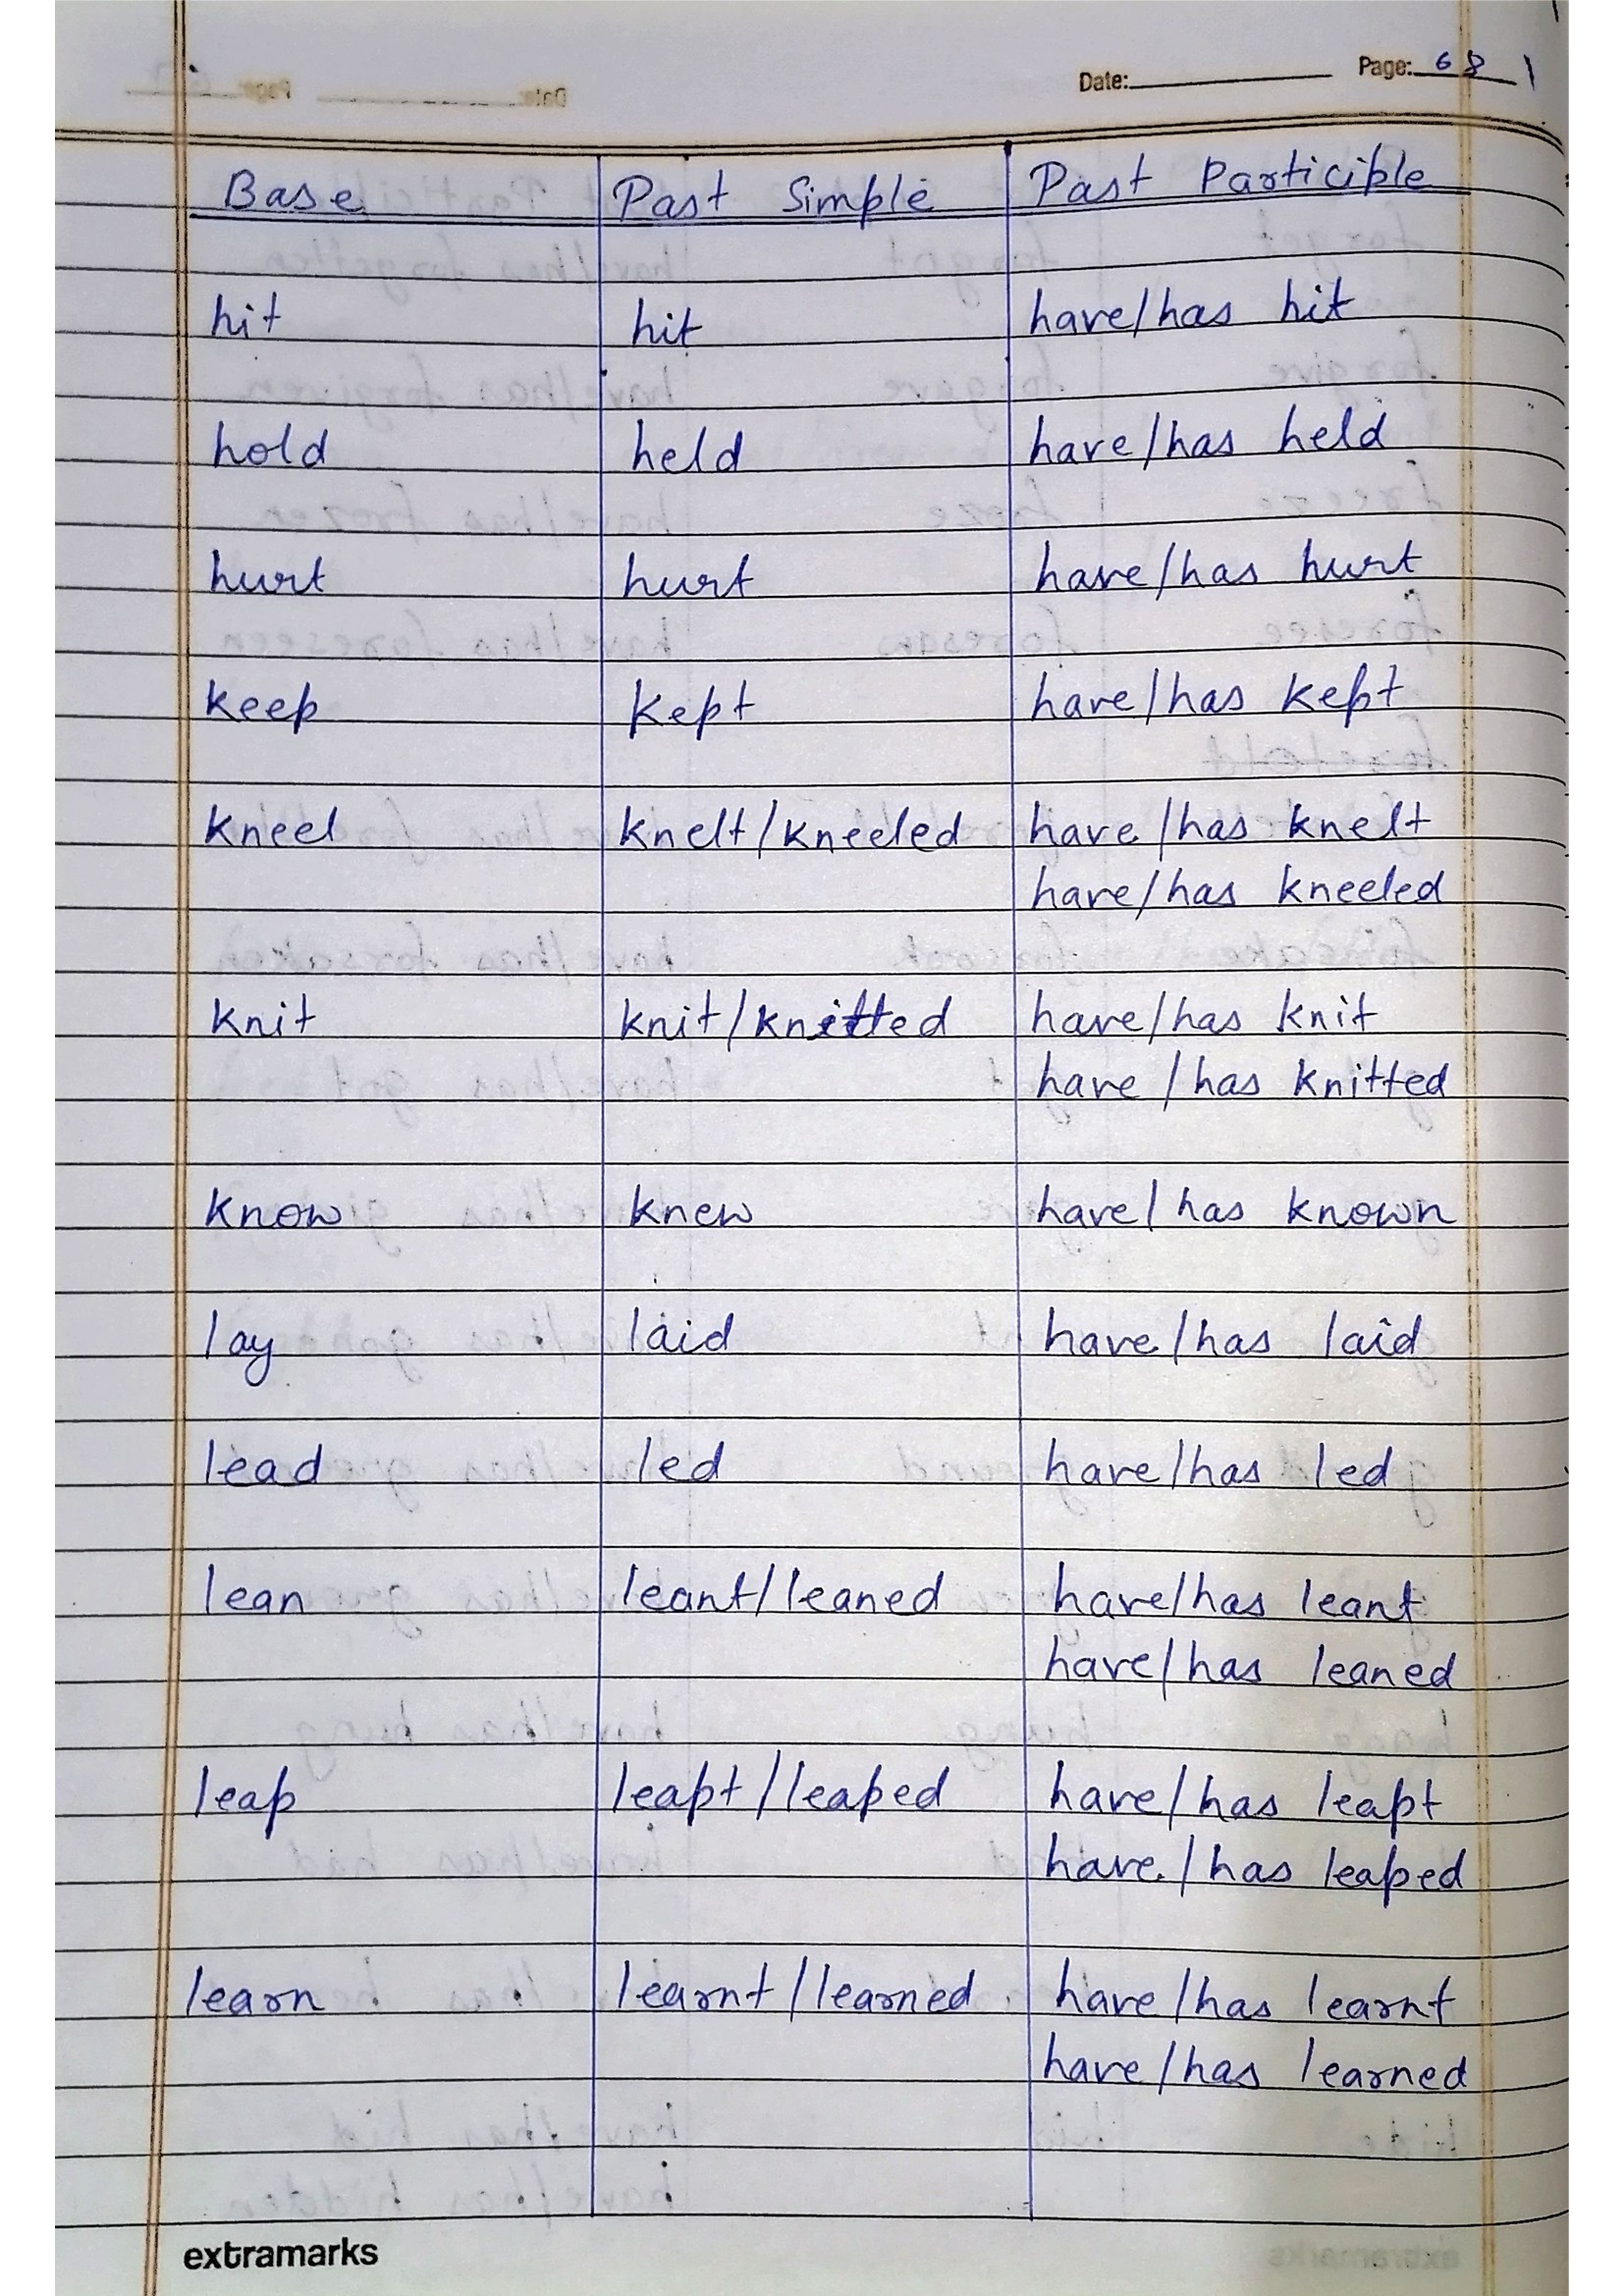 Date: Page: 68
Base Past Simple Past Participle
hit hit have/has hit
hold held have/has held
hurt hurt have/has hurt
keep kept have/has kept
kneel knelt/kneeled have/has knelt
have/has kneeled
knit knit/knitted have/has knit
have/has knitted
know knew have/has known
lay laid have/has laid
lead led have/has led
lean leant/leaned have/has leant
have/has leaned
leap leapt/leaped have/has leapt
have/has leaped
learn learnt/learned have/has learnt
have/has learned
extramarks